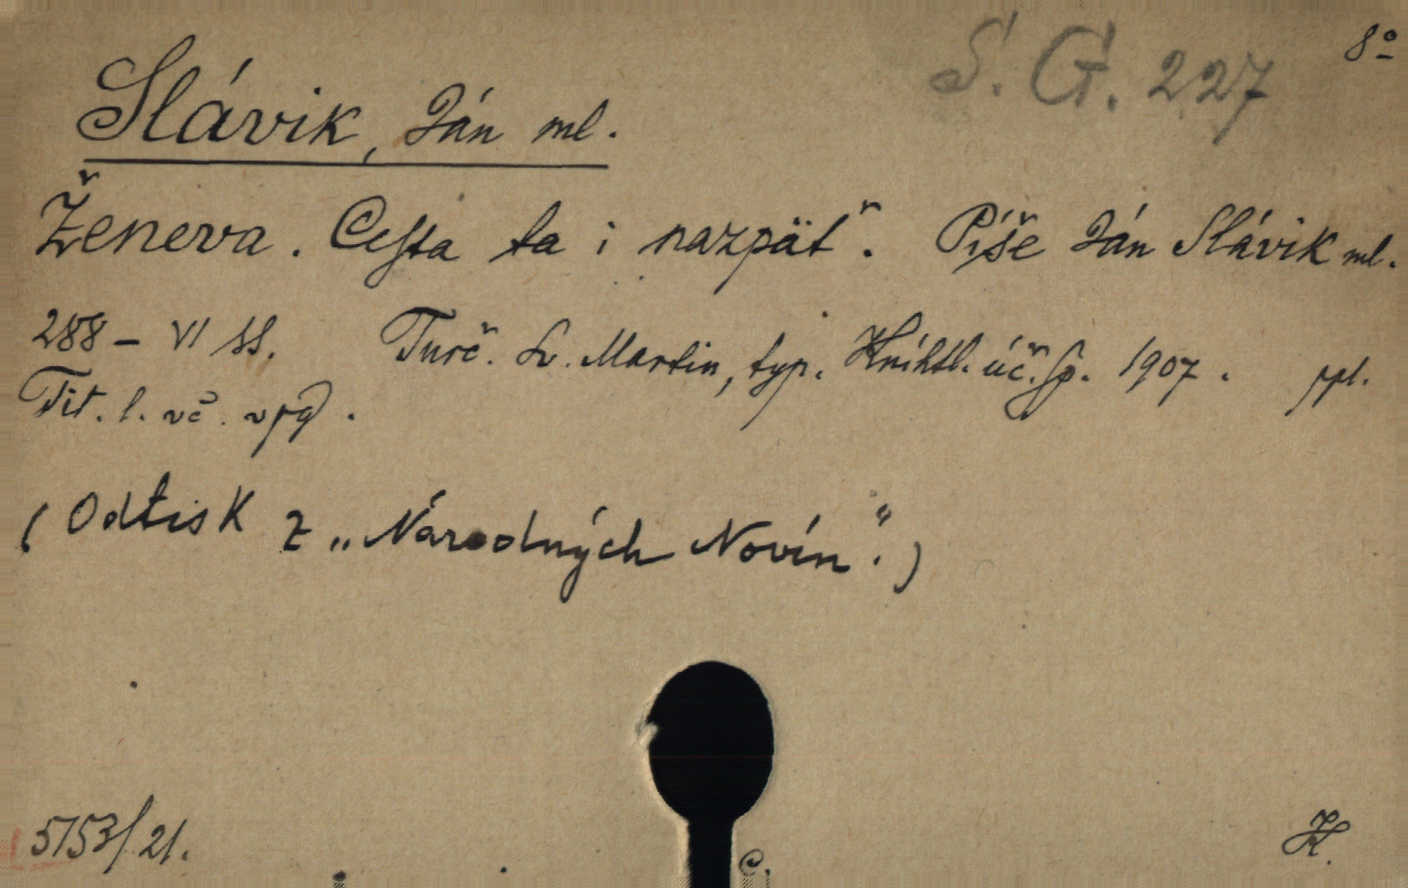 S. G. 227 8º
Slávik, Ján ml.
Ženeva. Cesta ta i nazpäť. Píše Ján Slávik ml.
288 – VI ss. Turč. Sv. Martin, typ. Kníhtl. úč. sp. 1907. ppl.
Tit. l. vč. vpg.
(Odtisk z „Národných Novín“.)
5153/21. C. K.